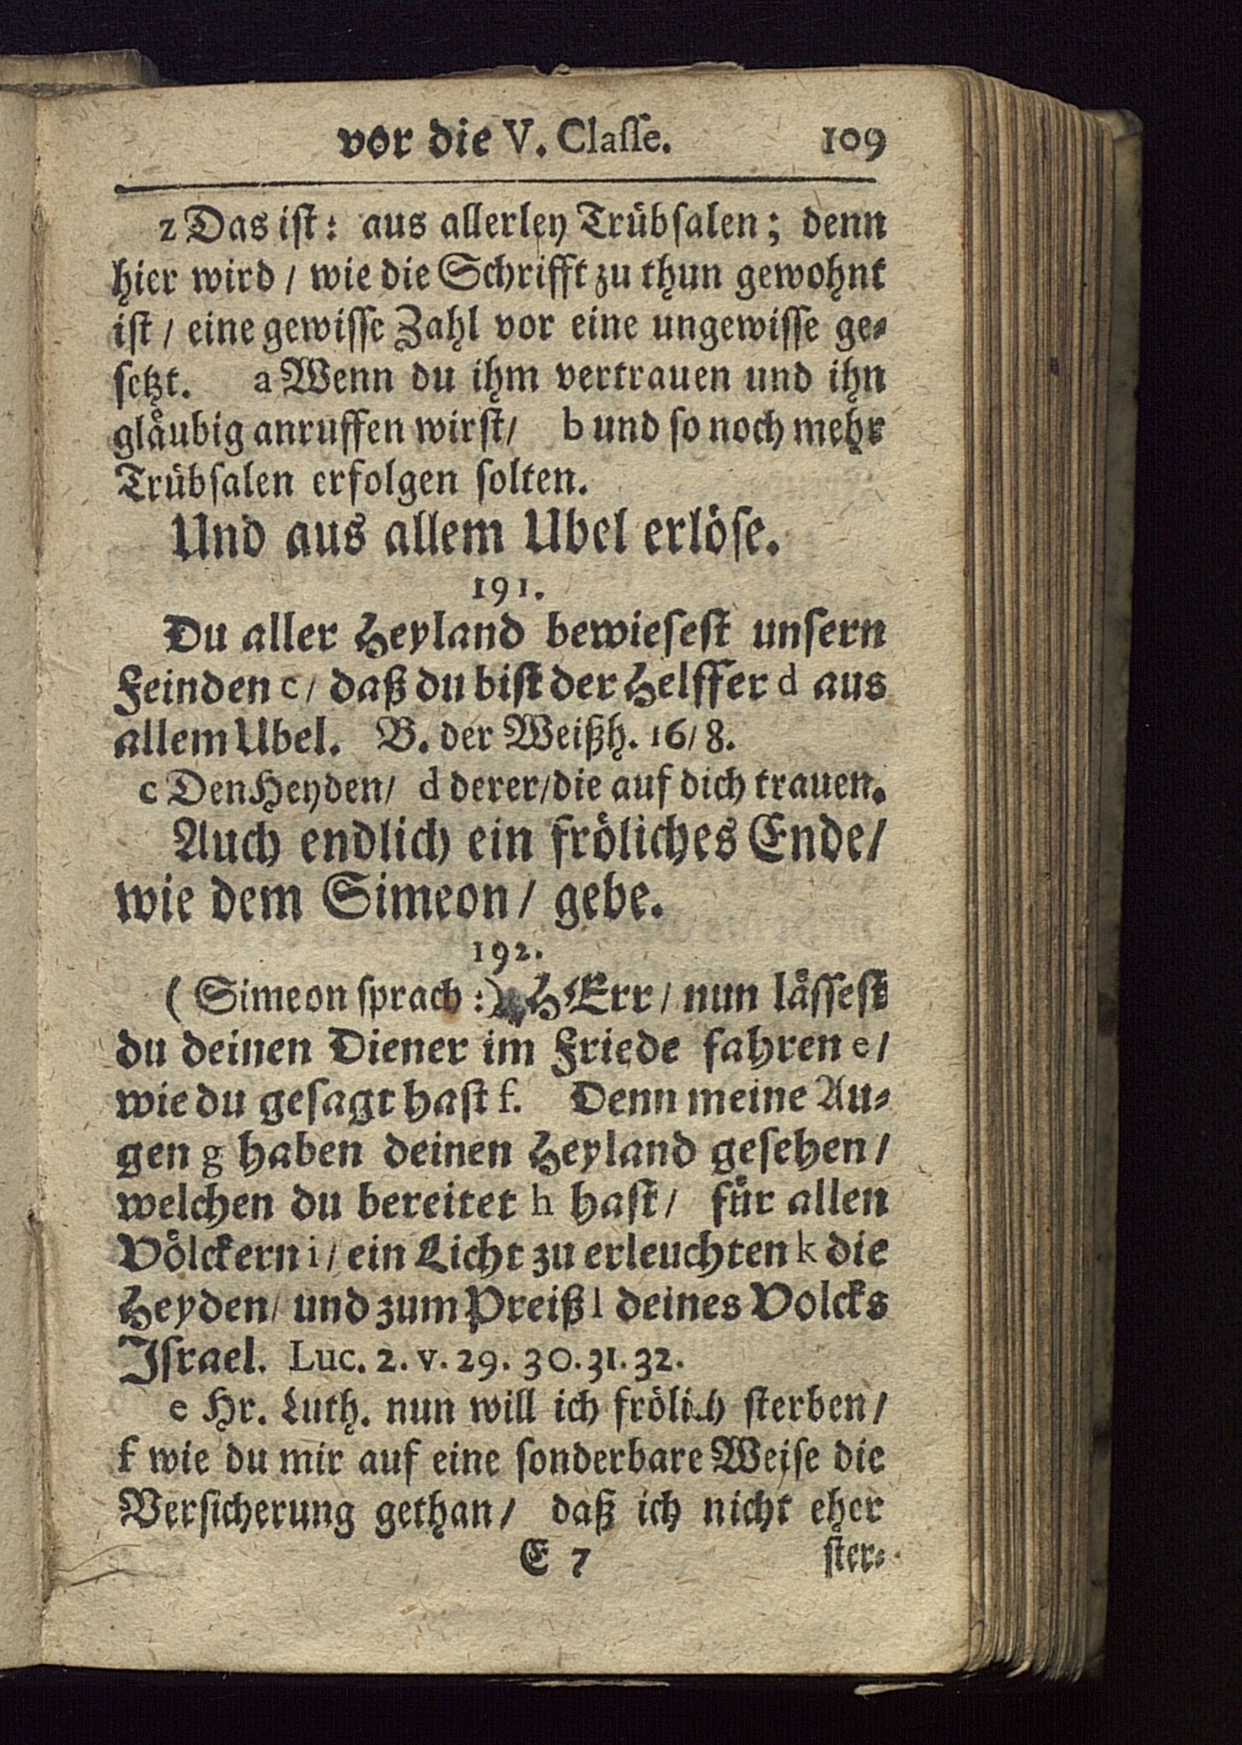 vor die V. Claſſe. 109
z Das iſt: aus allerley Trübſalen; denn
hier wird / wie die Schrifft zu thun gewohnt
iſt / eine gewiſſe Zahl vor eine ungewiſſe ge⸗
ſetzt. a Wenn du ihm vertrauen und ihn
glaͤubig anruffen wirſt / b und ſo noch mehr
Trübſalen erfolgen ſolten.
Und aus allem Ubel erlöſe.
191.
Du aller Heyland bewieſeſt unſern
Feinden c / daß du biſt der Helffer d aus
allem Ubel. B. der Weißh. 16 / 8.
c Den Heyden / d derer / die auf dich trauen.
Auch endlich ein fröliches Ende /
wie dem Simeon / gebe.
192.
( Simeon ſprach : ) HErr / nun laͤſſeſt
du deinen Diener im Friede fahren e /
wie du geſagt haſt f. Denn meine Au⸗
gen g haben deinen Heyland geſehen /
welchen du bereitet h haſt / fuͤr allen
Völckern i / ein Licht zu erleuchten k die
Heyden / und zum Preiß l deines Volcks
Iſrael. Luc. 2. v. 29. 30. 31. 32.
e Hr. Luth. nun will ich frölich ſterben /
f wie du mir auf eine ſonderbare Weiſe die
Verſicherung gethan / daß ich nicht eher
E 7 ſter⸗